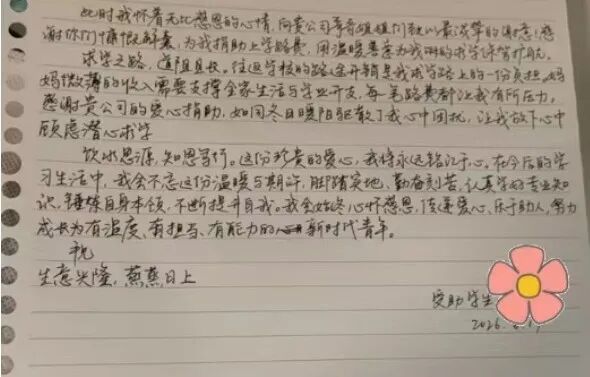 此时我怀着无比感恩的心情，向贵公司哥哥姐姐们致以最诚挚的谢意！感
谢你们慷慨解囊，为我捐助上学路费，用温暖善意为我的求学保驾护航。
求学之路，道阻且长。往返学校的路途开销是我求学路上的一份负担，妈
妈微薄的收入需要支撑全家生活与学业开支，每一笔路费都让我有所压力。
感谢贵公司的爱心捐助，如同冬日暖阳驱散了我心中困扰，让我放下心中
顾虑潜心求学
饮水思源，知恩笃行。这份珍贵的爱心，我将永远铭记于心。在今后的学
习生活中，我会不忘这份温暖与期许，脚踏实地、勤奋刻苦，认真学习专业知
识，锤炼自身本领，不断提升自我。我会始终心怀感恩，传递爱心、乐于助人，努力
成长为有温度、有担当、有能力的新时代青年。
祝
生意兴隆，蒸蒸日上
受助学生
2026.